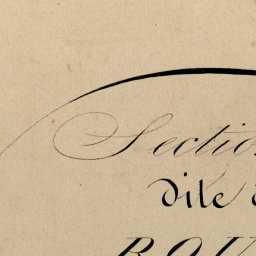 Section
dite
ROU